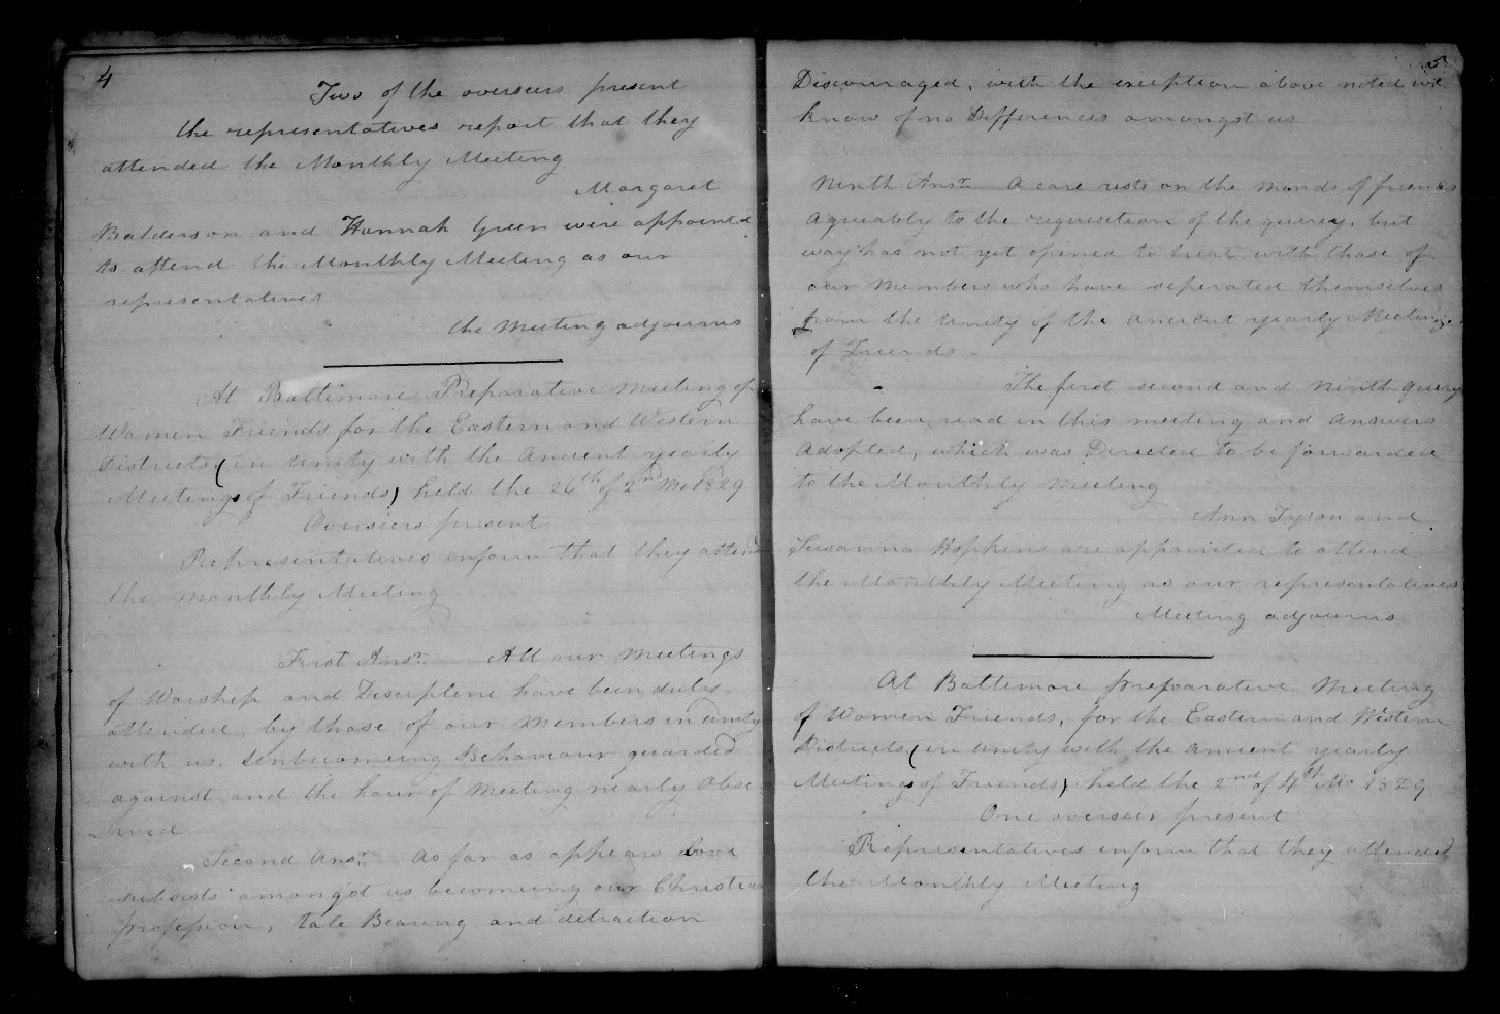 4
Two of the overseers present
the representatives report that they
attended the Monthly Meeting
Margaret
Balderson and Hannah Green were appointed
to attend the Monthly Meeting as our
representatives
the Meeting adjourns
At Baltimore Preparative Meeting of
Women Friends for the Eastern and Western
Districts (in unity with the Ancient yearly
Meeting of Friends) held the 26th of 2nd Mo 1829
Overseers present
Representatives inform that they attend
the Monthly Meeting
First Ansr. All our Meetings
of Worship and Discipline have been duly
attended, by those of our Members in unity
with us. Unbecomeing Behaviour guarded
against and the hour of Meeting nearly Obse
-rved
Second Ansr. As far as appears Love
subsists amongst us becomeing our Christian
profession, tale Bearing and detraction
5
Discouraged, with the exception above noted we
know of no Differences amongst us
Ninth Ansr. A care rests on the minds of friends
agreeably to the requisition of the query, but
way has not yet opened to treat with those of
our Members who have seperated themselves
from the unity of the ancient yearly Meeting
of Friends -
The first second and Ninth query
have been read in this meeting and Answers
Adopted, which was Directed to be forwarded
to the Monthly Meeting
Ann Tyson and
Susanna Hopkins are appointed to attend
the Monthly Meeting as our representatives
Meeting adjourns
At Baltimore preparative Meeting
of Women Friends, for the Eastern and Western
Districts (in unity with the Ancient yearly
Meeting of Friends) held the 2nd of 4th Mo 1829
One overseer present
Representatives inform that they attended
the Monthly Meeting